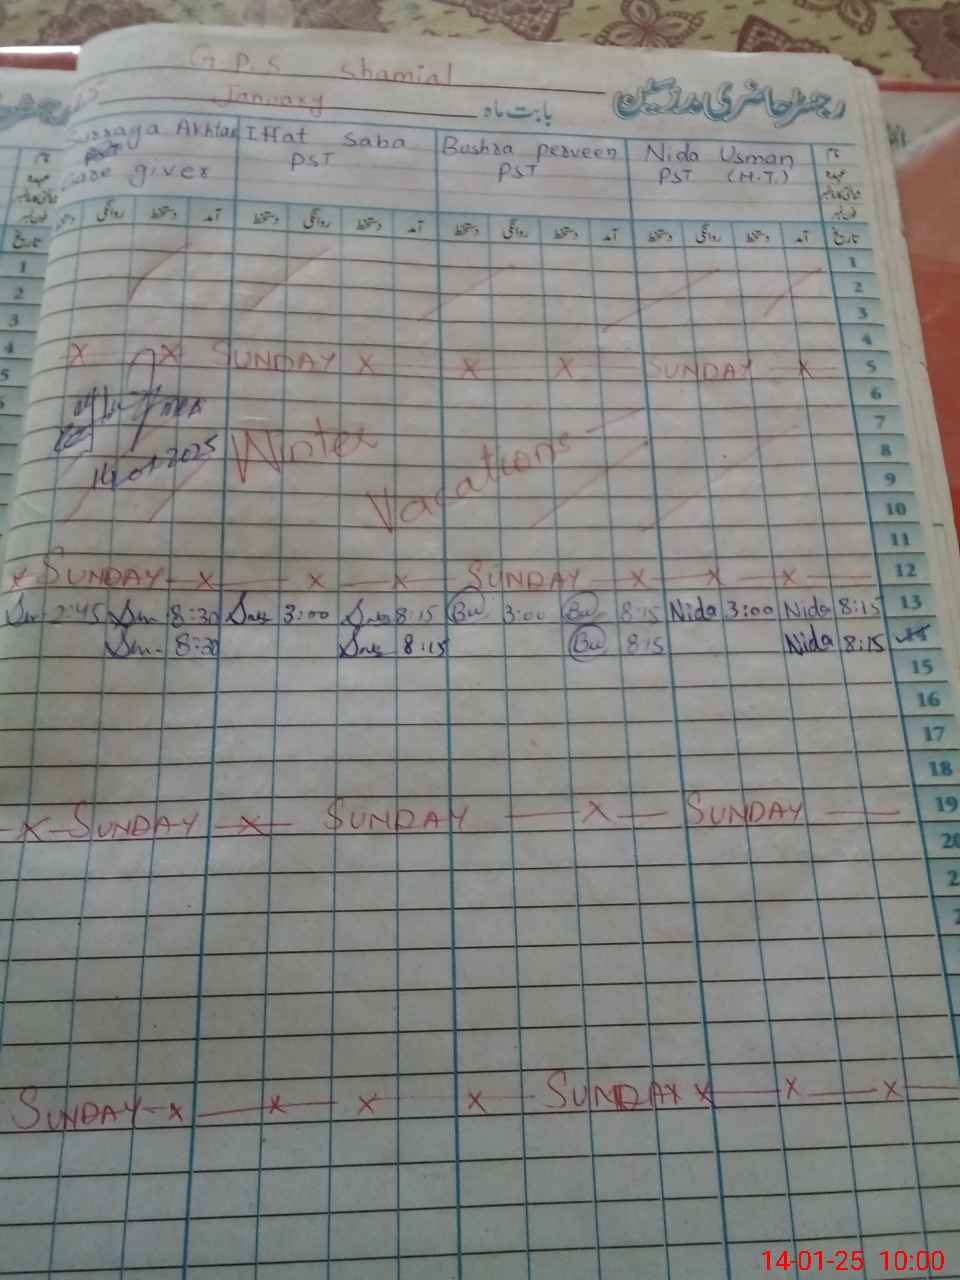 G.P.S Shamial
January بابت ماہ رجسٹر حاضری مدرسین
Akhtar Iffat Saba Bushra perveen Nida Usman نام
care giver PST PST PST (H.T.)
دستخط روانگی دستخط آمد دستخط روانگی دستخط آمد دستخط روانگی دستخط آمد دستخط روانگی دستخط آمد تاریخ
1 1
2 2
3 3
4 4
5 x x SUNDAY x x x SUNDAY x 5
6
7
Winter 8
14.01.2025 Vacations 9
10
11
x SUNDAY x x x SUNDAY x x x 12
2:45 8:30 3:00 8:15 Bu 3:00 Bu 8:15 Nida 3:00 Nida 8:15 13
8:30 8:15 Bu 8:15 Nida 8:15
15
16
17
18
x SUNDAY x SUNDAY x SUNDAY 19
20
2
SUNDAY x x x x SUNDAY x x x x
14-01-25 10:00